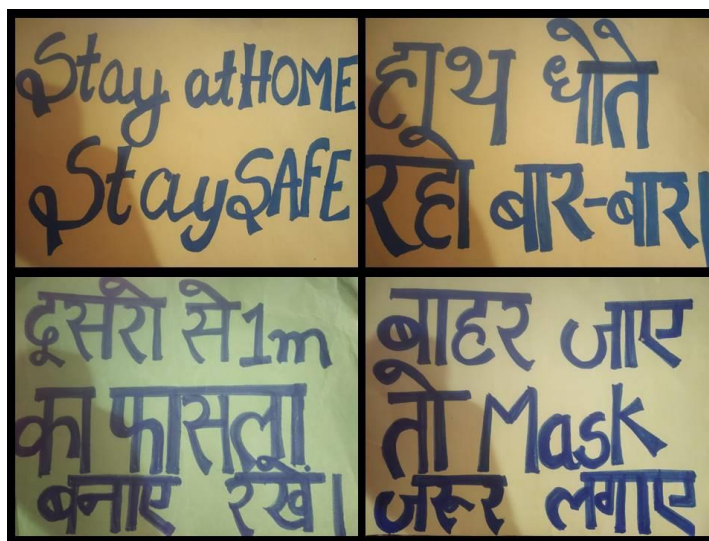 Stay at HOME
Stay SAFE
हाथ धोते
रहो बार-बार।
दूसरो से 1m
का फासला
बनाए रखें।
बाहर जाए
तो Mask
जरूर लगाए